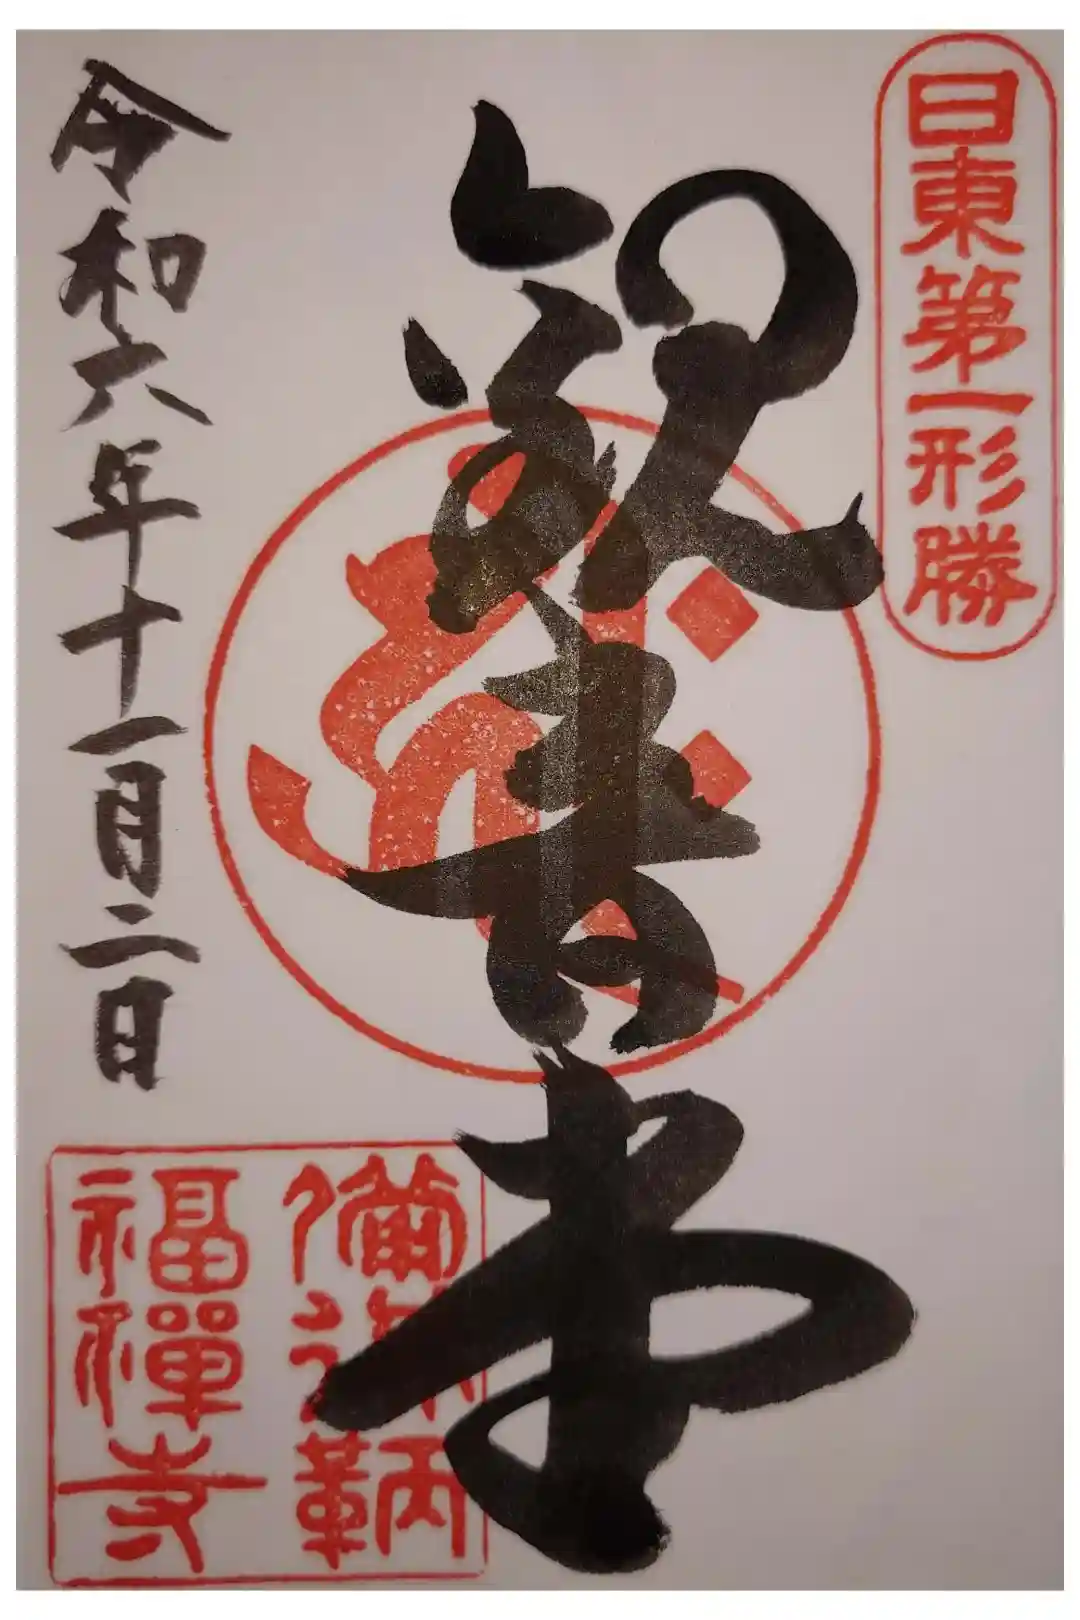 日東第一形勝
観音堂
令和六年十一月二日
備後鞆
福禅寺